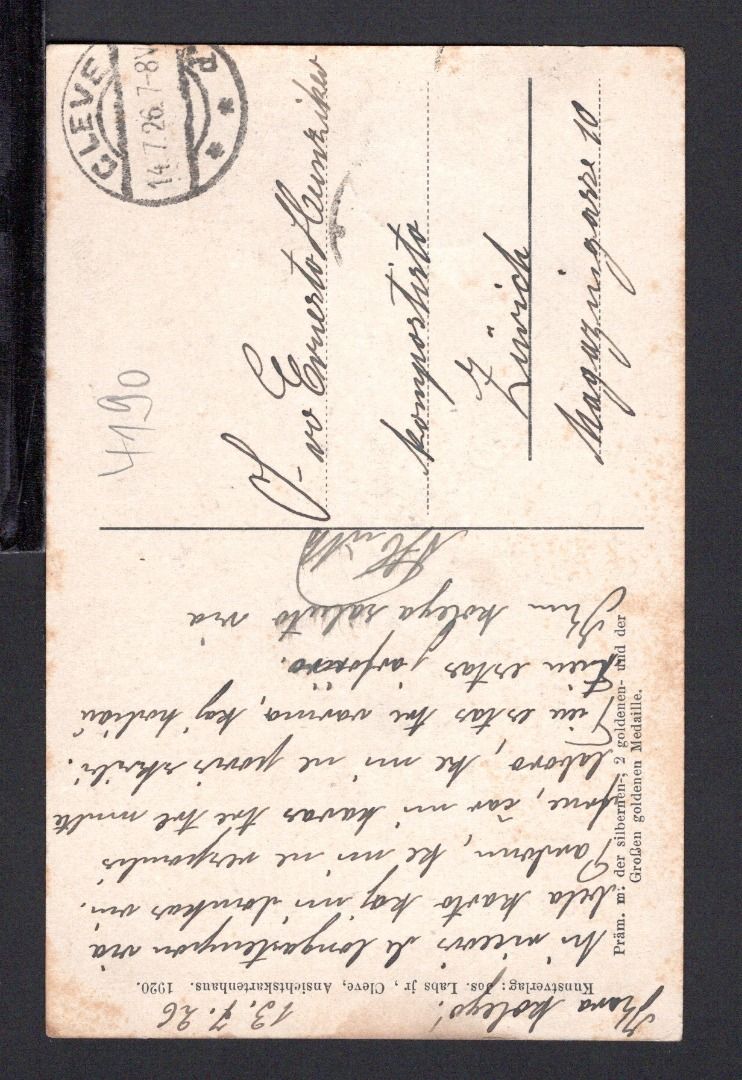 CLEVE
14.7.26.7-8V
d
4190
S-vo Ernesto Hunziker
kompostisto
Zürich
Magazingasse 10
13.7.26
Kara kolego!
Mi ricevis de longan tempon via
bela karto kaj mi dankas vin.
Pardonu, ke mi ne respondis
frue, ĉar mi havas tre tre multe
laboro, ke mi ne povis skribi.
Ĉiu estas tre varma, kaj hodiaŭ
ĉiu estas
Kun kolega saluto via
Kunstverlag: Jos. Labs jr., Cleve, Ansichtskartenhaus. 1920.
Präm. m. der silbernen-, 2 goldenen- und der
Großen goldenen Medaille.